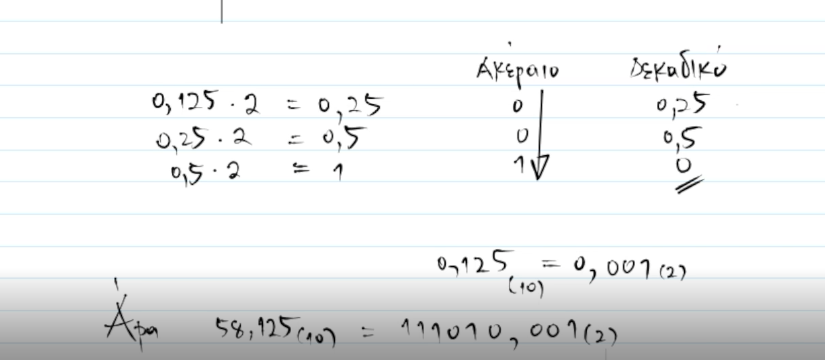 Ακέραιο Δεκαδικό
0,125 · 2 = 0,25 0 0,25
0,25 · 2 = 0,5 0 0,5
0,5 · 2 = 1 1 0
0,125(10) = 0,001(2)
Άρα 58,125(10) = 111010,001(2)